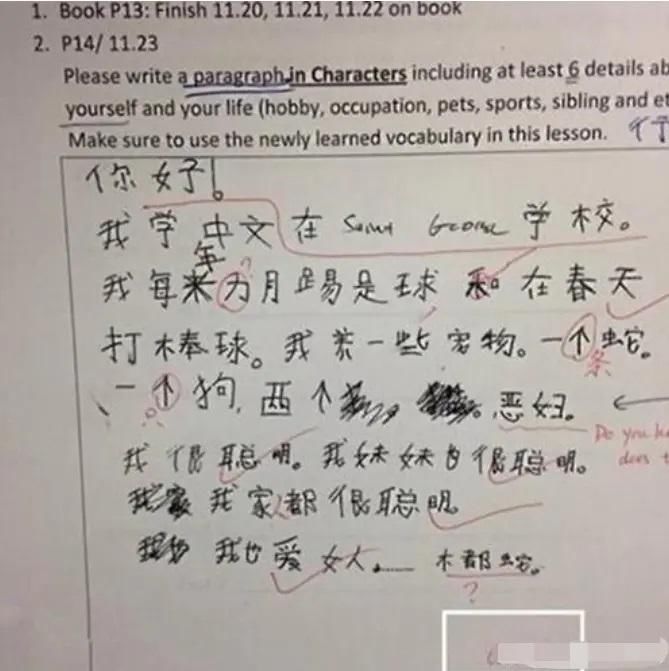 1. Book P13: Finish 11.20, 11.21, 11.22 on book
2. P14/ 11.23
Please write a paragraph in Characters including at least 6 details ab
yourself and your life (hobby, occupation, pets, sports, sibling and et
Make sure to use the newly learned vocabulary in this lesson.
你好!
我学中文在 Saint George 学校。
年
我每来 月踢是球和在春天
打棒球。我养一些宠物。一个蛇。
条
一个狗,两个 恶妇。
Do you
does
我很聪明。我妹妹也很聪明。
我家人都很聪明。
我也爱女人. 木都蛇。
?